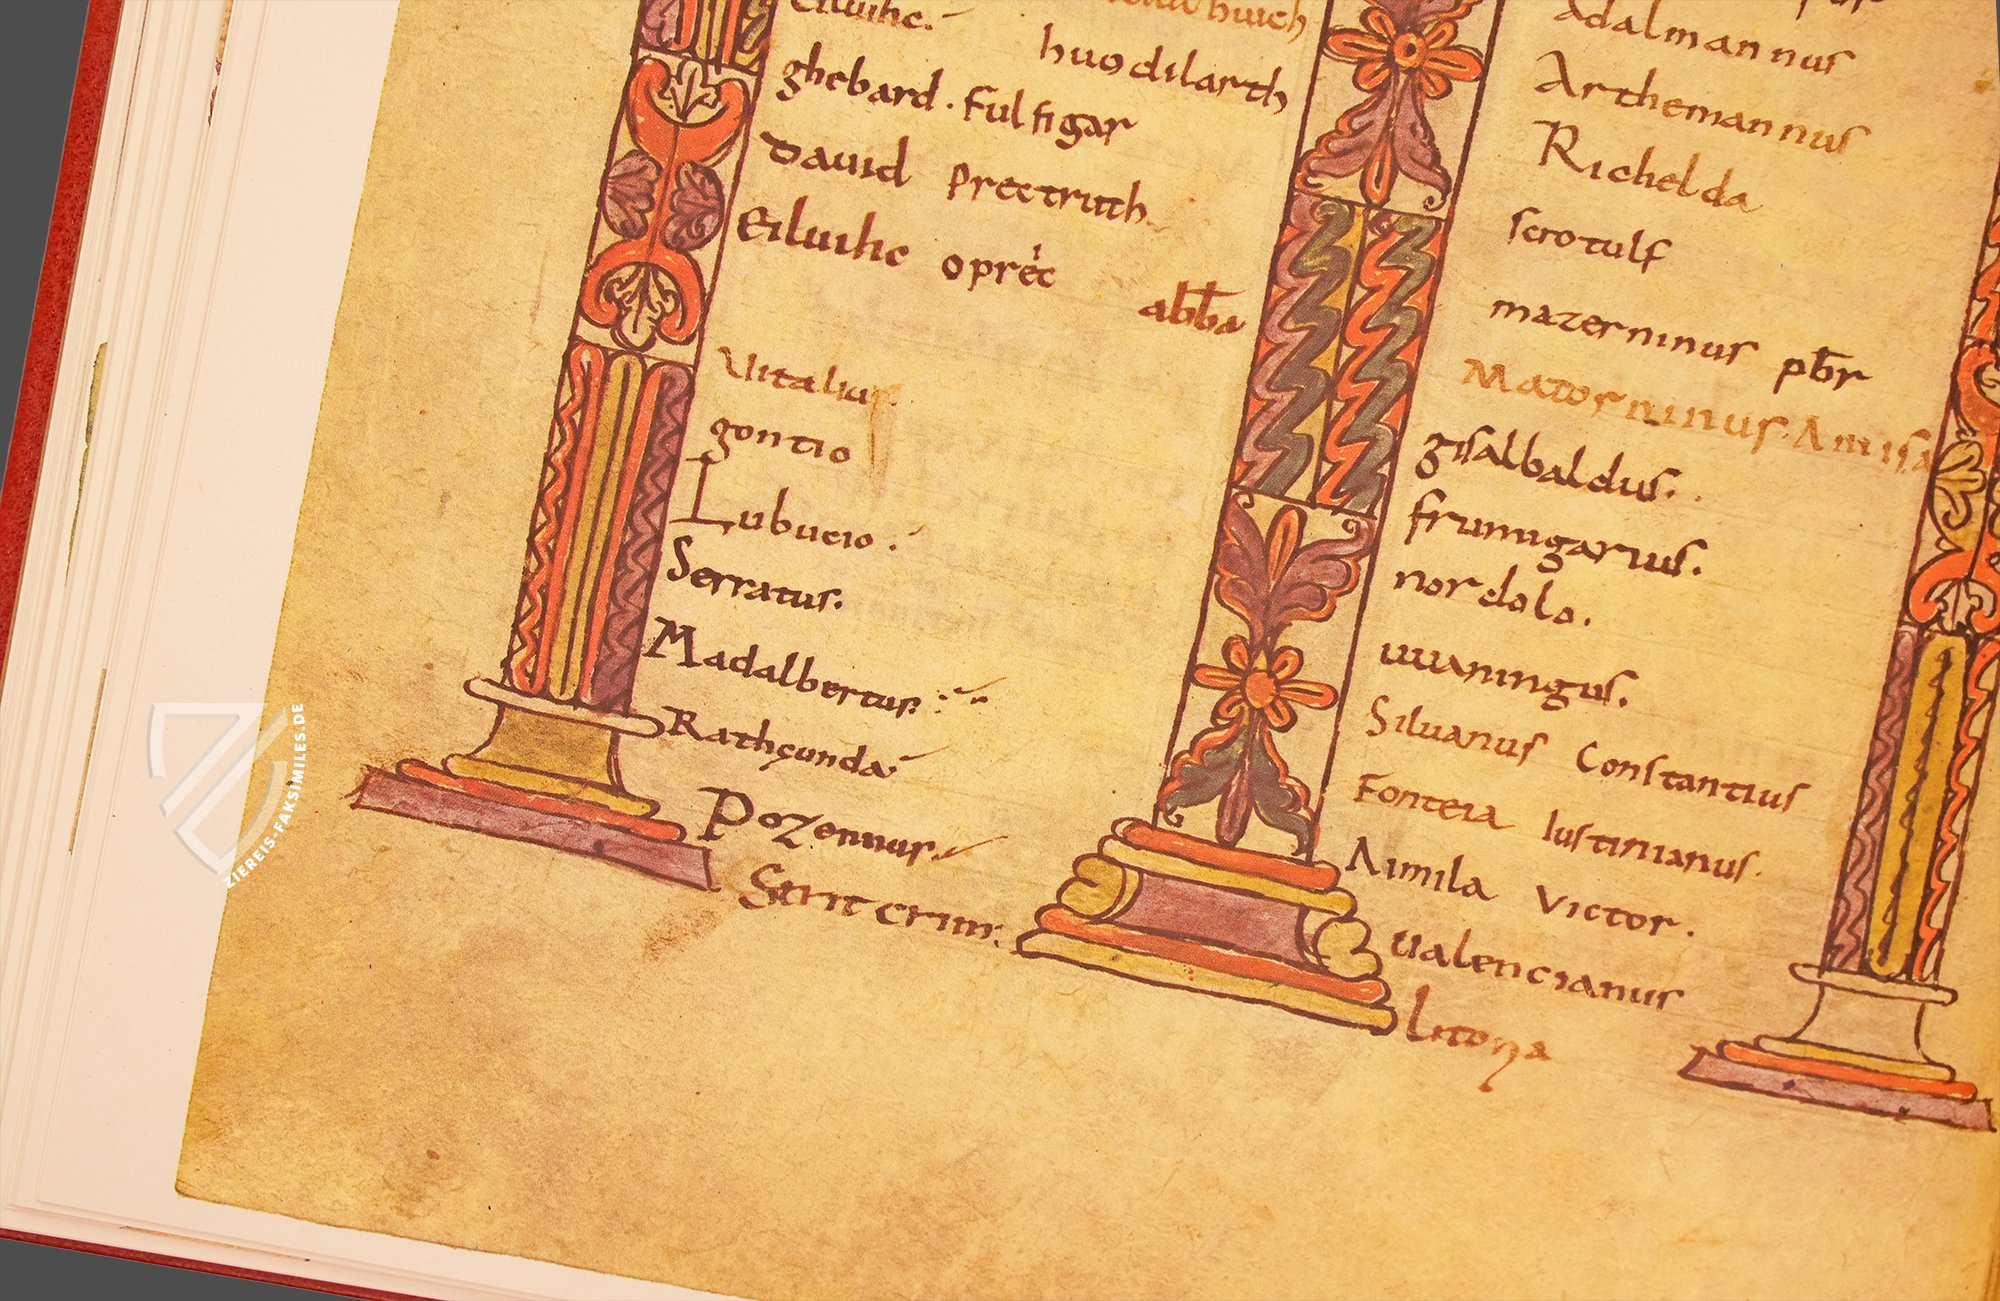 Eiluihc.
huodilarth
ghebard. fulfigar
David prectruth
Eiluihc oprec
abba
Uitalius.
gontio
Lubucio.
Serratus.
Madalbertus:
Rathcunda
Pozennus.
adalmannus
Arthemannus
Richelda
scrotulf
mazerninus pbr
Materninus. Amisa
gisalbaldus.
frumigarius.
nordolo.
uuaningus.
Siluanus Constantius
Fonteia Iustinianus.
Aimila Victor.
Ualencianus
ZIEREIS-FAKSIMILES.DE